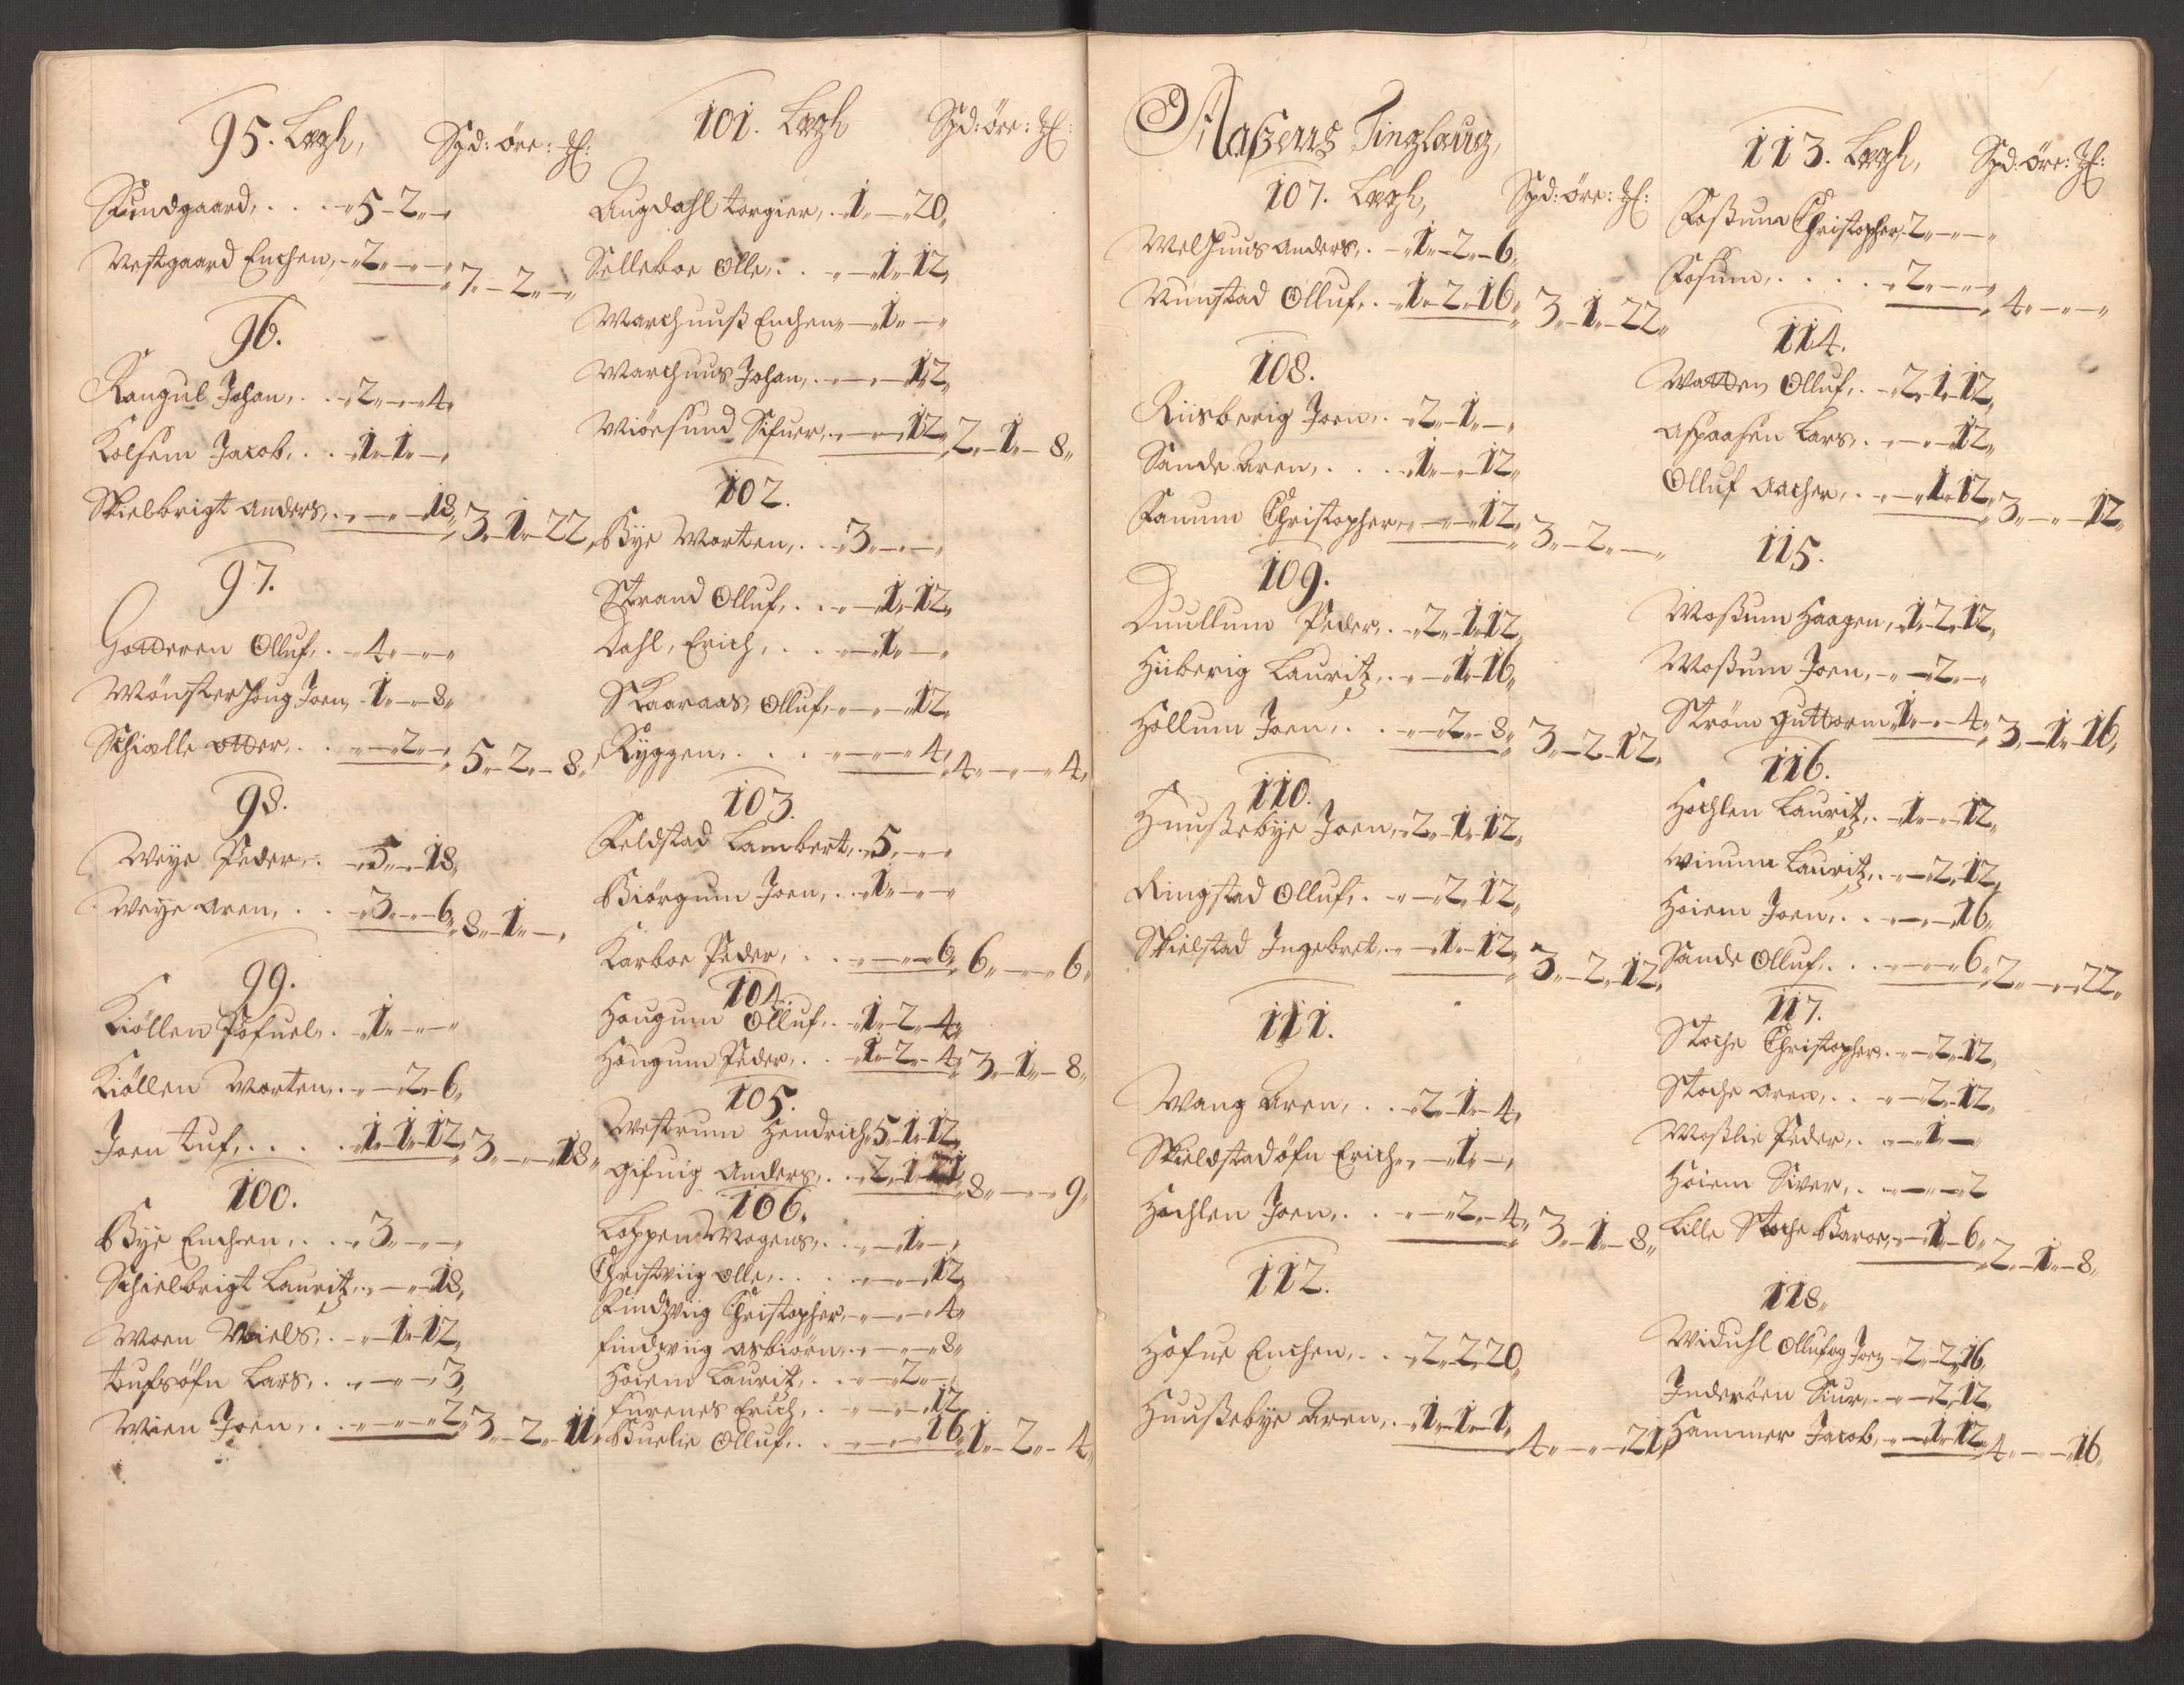 95. Lægh, Spd: öre: 
Sundgaard, . . . 5 - 2 „ - „
Vestgaard Enchen, - „ 2 „ - „ - „ 7 „ - 2 „ - „
96.
Rangul Johan, . . - „ 2 „ - „ - 4 „
Kolsem Jacob, . . - „ 1 „ - 1 „ - „
Skielbrigt anders, . - „ - „ - 18 „ 3 „ - 1 „ - 22 „
97.
Olluf, . - „ 4 „ - „ - „
Mönsterhoug Joen, - 1 „ - „ - 8 „
Schialle otter, . . - „ - „ 2 „ - „ 5 „ - 2 „ - 8 „
98.
Weye Peder, . - 5 „ - „ - 18 „
Weye aren, . . - „ 3 „ - „ - 6 „ 8 „ - 1 „ - „
99.
Kiöllen Pofuel, . - „ 1 „ - „ - „
Kiöllen Morten, . - „ - 2 „ - 6 „
Joen tuf, . . . . - „ 1 „ - 1 „ - 12 „ 3 „ - „ - 18 „
100.
Bye Enchen, . . - „ 3 „ - „ - „
Schielbrigt Lauritz, . „ - „ - 18 „
Moen Niels, . - „ - 1 „ - 12 „
tufsöfn Lars, . - „ - „ - 3 „
Wien Joen, . . - „ - „ - 2 „ 3 „ - 2 „ - 11 „
101. Lægh Spd: öre: 
Augdahl torgier, . 1 „ - „ 20 „
Selleboe Olle, . . - „ - 1 „ - 12 „
Marchuuß Enchen „ - „ 1 „ - „
Marchuus Johan, . - „ - „ - 12 „
Miösund Sifuer, . - „ - „ 12 „ 2 „ - 1 „ - 8 „
102.
Bye Morten, . . - „ 3 „ - „ - „
Strand Olluf, . . - „ - 1 „ - 12 „
Dahl, Erich, . . . - „ - 1 „ - „
Skaaraas, Olluf, - „ - „ - 12 „
Ryggen, . . . - „ - „ - 4 „ 4 „ - „ - 4 „
103.
Feldstad Lambert, . 5 „ - „ - „
Biörgum Joen, . . - „ 1 „ - „ - „
Karboe Peder, . . - „ - „ - 6 „ 6 „ - „ - 6 „
104.
Hougum Olluf, . - „ 1 „ - 2 „ - 4 „
Hougum Peder, . . - „ 1 „ - 2 „ - 4 „ 3 „ - 1 „ - 8 „
105.
Westrum Hendrich 5 „ - 1 „ - 12 „
Anders, . . 2 „ - 1 „ - 21 „ 8 „ - „ - 9 „
106.
Loppen Mogens, . . - „ - 1 „ - „
Christviig olle, . . . - „ - „ - 12 „
Findzviig Christopher, - „ - „ - 4 „
findzviig asbiörn, . - „ - „ - 8 „
Hoiem Lauritz, . . - „ - 2 „ - „
furenes Erich, . - „ - „ - 12 „
Buelie Olluf, . . - „ - „ - 16 „ 1 „ - 2 „ - 4 „
Tinglaug,
107. Lægh, Spd: öre: 
Melhuus anders, . - „ 1 „ - 2 „ - 6 „
Nunstad Olluf, . - „ 1 „ - 2 „ - 16 „ 3 „ - 1 „ - 22 „
108.
Riisberig Joen, . - 2 „ - 1 „ - „
Sande Aren, . . . - „ 1 „ - „ - 12 „
Fanum Christopher, - „ - „ - 12 „ 3 „ - 2 „ - „
109.
Duullum Peder, . - 2 „ - 1 „ 12 „
Hiiberig Lauritz, . - „ - 1 „ - 16 „
Hollum Joen, . . - „ - 2 „ - 8 „ 3 „ - 2 „ - 12 „
110.
Huußebye Joen, - 2 „ - 1 „ - 12 „
Ringstad Olluf, . - „ - „ 2 „ 12 „
Skielstad Ingebret, . - „ - 1 „ - 12 „ 3 „ - 2 „ 12 „
111.
Wang Aren, . . - 2 „ - 1 „ - 4 „
Skieldstadöfn Erich, - „ - 1 „ - „
Hachlen Joen, . . - „ - „ 2 „ - 4 „ 3 „ - 1 „ - 8 „
112.
Hofue Enchen, . . - „ 2 „ 2 „ 20 „
Huußebye Aren, . - „ 1 „ - 1 „ - 1 „ 4 „ - „ - 21 „
113. Lægh, Spd: öre: 
Foßum Christopher, 2 „ - „ - „
Fosum, . . . . - „ 2 „ - „ - „ 4 „ - „ - „
114.
Watten Olluf, . - 2 „ 1 „ 12 „
aspaasen Lars, . - „ - „ 12 „
Olluf Aacher, . - „ - 1 „ - 12 „ 3 „ - „ - 12 „
115.
Moßum Haagen, - 1 „ - 2 „ - 12 „
Moßum Joen, - „ - 2 „ - „
Ström guttorm, 1 „ - „ - 4 „ 3 „ - 1 „ - 16 „
116.
Hochlen Lauritz, . - „ 1 „ - „ - 12 „
Vinum Lauritz, . - „ - 2 „ 12 „
Hoiem Joen, . . - „ - „ - 16 „
Sande Olluf, . . - „ - „ - 6 „ 2 „ - „ - 22 „
117.
Stoche Christopher, . - „ - 2 „ - 12 „
Stoche aren, . . - „ - 2 „ - 12 „
Moßlie Peder, . - „ - 1 „ - „
Hoiem Siver, . - „ - „ - 2
Lille Stoche Baroe, - „ - 1 „ - 6 „ 2 „ - 1 „ - 8 „
118.
Viduhl Olluf og Joen - 2 „ - 2 „ 16 „
Inderöen Siur, . - „ - 2 „ - 12 „
Hammer Jacob, - „ - 1 „ - 12 „ 4 „ - „ - 16 „